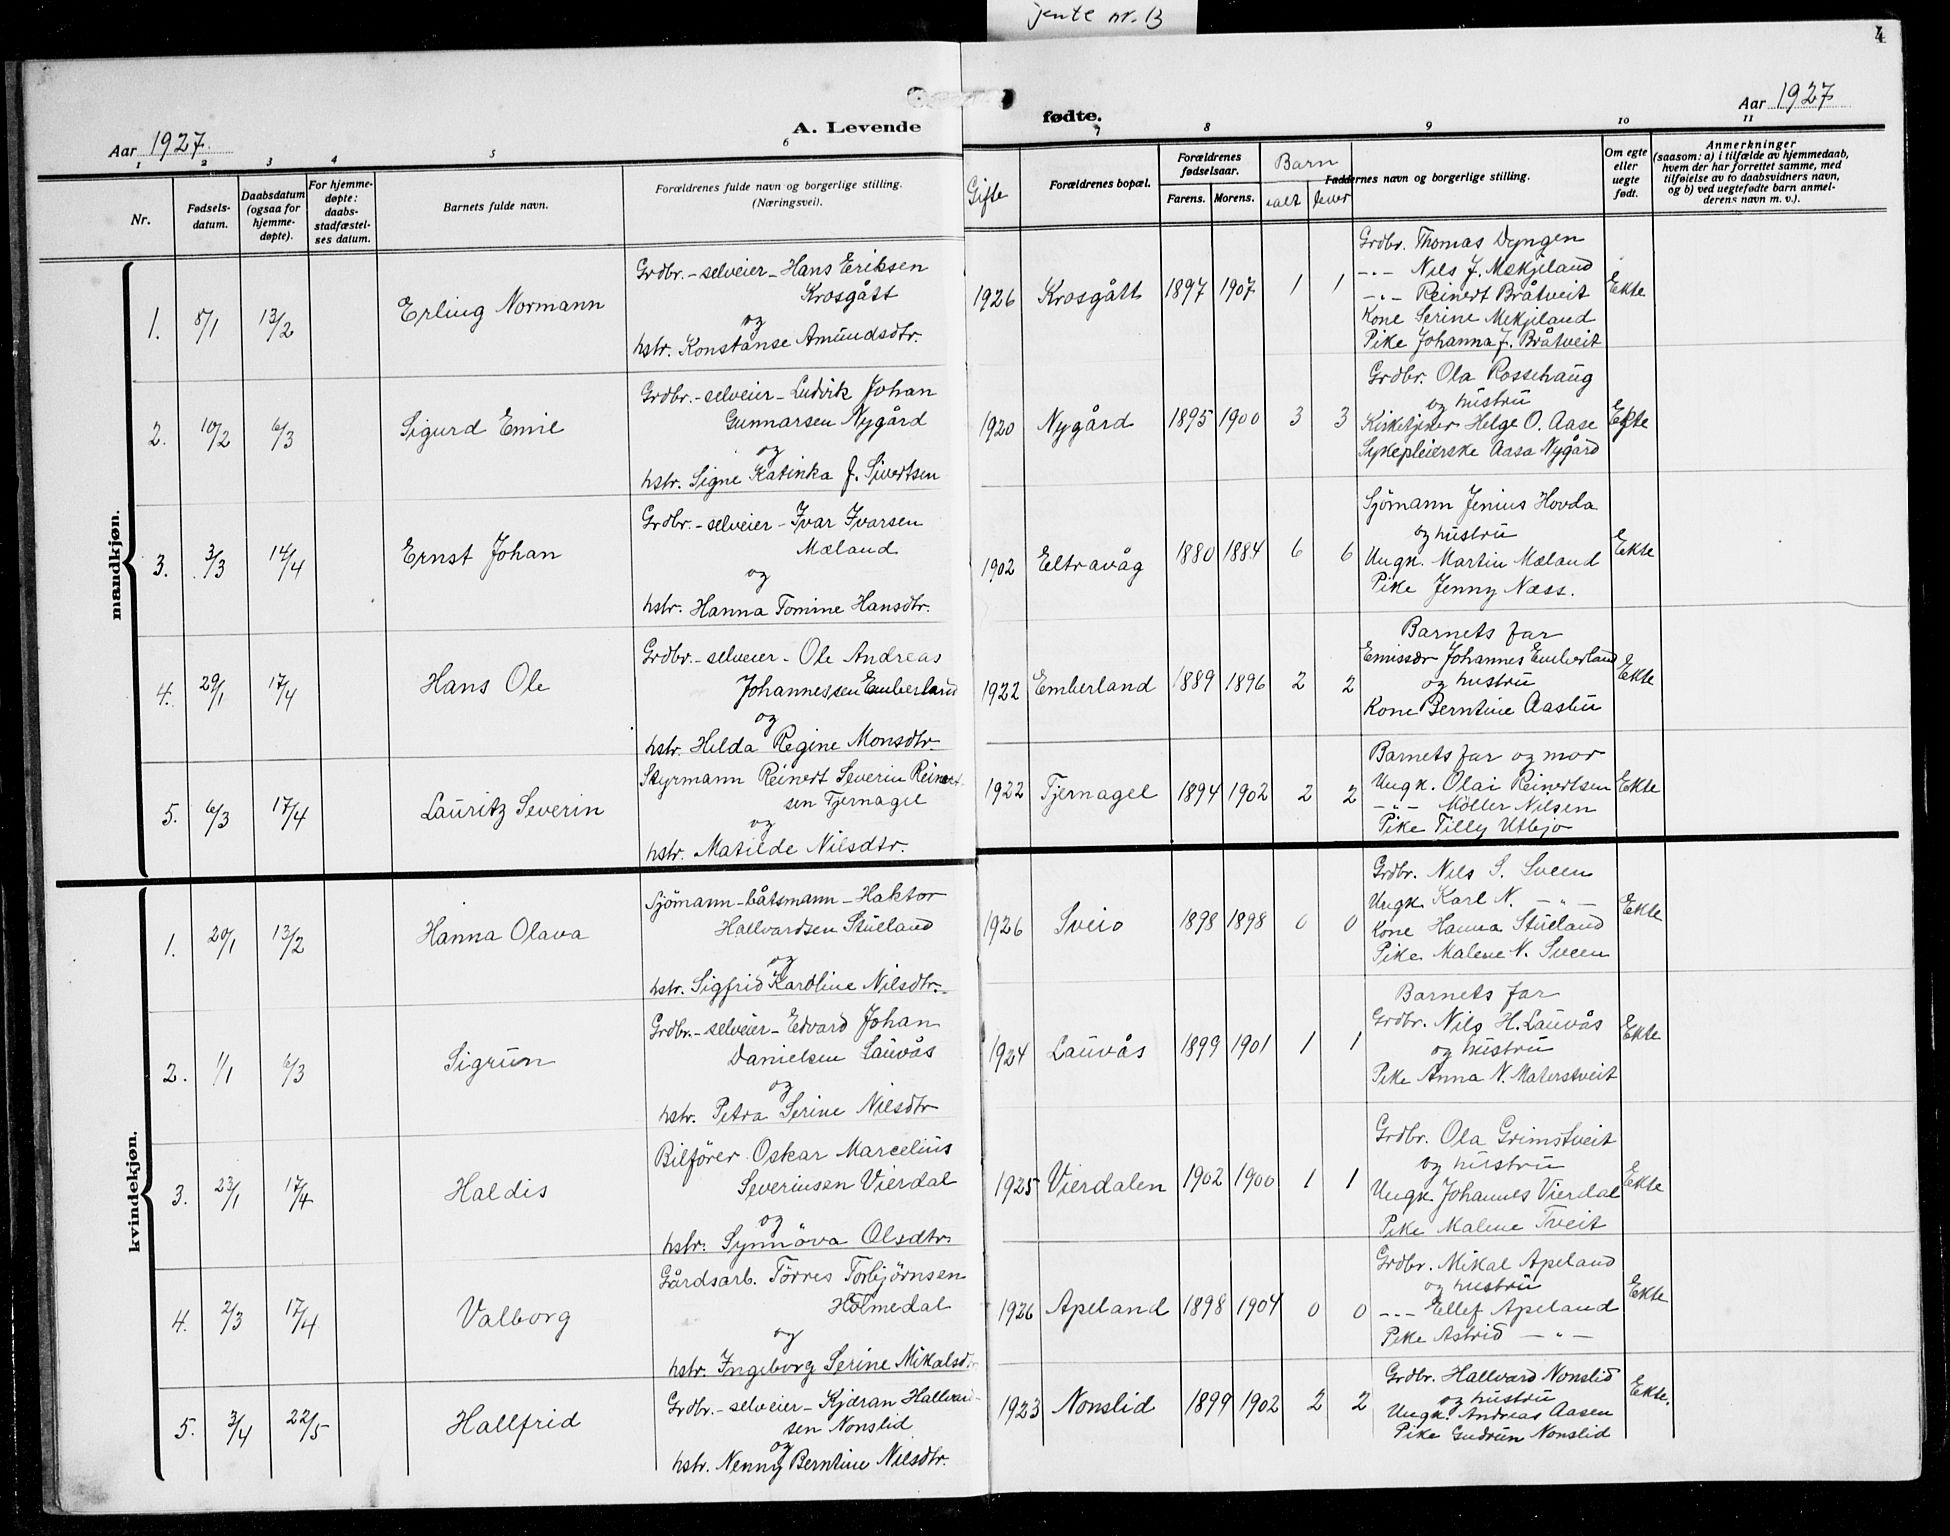 jente nr. 13
4
Aar 1927.
A. Levende
fødte.
Aar 1927
1 2 3 4 5 6 7 8 9 10 11
Nr.
Fødsels-
datum.
Daabsdatum
(ogsaa for
hjemme-
døpte).
For hjemme-
døpte:
daabs-
stadfæstel-
ses datum.
Barnets fulde navn.
Forældrenes fulde navn og borgerlige stilling.
(Næringsvei).
Gifte
Forældrenes bopæl.
Forældrenes
fødselsaar.
Farens. Morens.
Barn
ialt lever
Faddernes navn og borgerlige stilling.
Om egte
eller
uegte
født.
Anmerkninger
(saasom: a) i tilfælde av hjemmedaab,
hvem der har forrettet samme, med
tilføielse av to daabsvidners navn,
og b) ved uegtefødte barn anmel-
derens navn m. v.).
mandkjøn.
1. 8/1 13/2 Erling Normann
Grdbr. - selveier - Hans Eriksen
Krosgått
og
hstr. Konstanse Amundsdtr.
1926 Krosgått 1897 1907 1 1
Grdbr. Thomas Dyngen
-"- Nils J. Mekjeland
-"- Reinert Bråtveit
Kone Serine Mekjeland
Pike Johanna J. Bråtveit
Ekte
2. 10/2 6/3 Sigurd Emil
Grdbr. - selveier - Ludvik Johan
Gunnarsen Nygård
og
hstr. Signe Katinka J. Sivertsen
1920 Nygård 1895 1900 3 3
Grdbr. Ola Rossehaug
og hustru
Kirketjener Helge O. Aase
Sykepleierske Aasa Nygård
Ekte
3. 3/3 14/4 Ernst Johan
Grdbr. - selveier - Ivar Ivarsen
Mæland
og
hstr. Hanna Tomine Hansdtr.
1902 Eltravåg 1880 1884 6 6
Sjömann Jenius Hovda
og hustru
Ungk. Martin Mæland
Pike Jenny Næss.
Ekte
4. 29/1 17/4 Hans Ole
Grdbr. - selveier - Ole Andreas
Johannessen Emberland
og
hstr. Hilda Regine Monsdtr.
1922 Emberland 1889 1896 2 2
Barnets far
Emissær Johannes Emberland
og hustru
Kone Berntine Aasbu
Ekte
5. 6/3 17/4 Lauritz Severin
Styrmann Reinert Severin Reinert-
sen Tjernagel
og
hstr. Matilde Nilsdtr.
1922 Tjernagel 1894 1902 2 2
Barnets far og mor
Ungk. Olai Reinertsen
-"- Möller Nilsen
Pike Tilly Utbjo
Ekte
kvindekjøn.
1. 20/1 13/2 Hanna Olava
Sjömann - båtsmann - Haktor
Hallvardsen Stueland
og
hstr. Sigfrid Karoline Nilsdtr.
1926 Sveio 1898 1898 0 0
Grdbr. Nils S. Sveen
Ungk. Karl N. -"-
Kone Hanna Stueland
Pike Malene N. Sveen
Ekte
2. 1/1 6/3 Sigrun
Grdbr. - selveier - Edvard Johan
Danielsen Lauvås
og
hstr. Petra Serine Nilsdtr
1924 Lauvås 1899 1901 1 1
Barnets far
Grdbr. Nils H. Lauvås
og hustru
Pike Anna N. Materstveit
Ekte
3. 23/1 17/4 Haldis
Bilförer Oskar Marcelius
Severinsen Vierdal
og
hstr. Synnöva Olsdtr.
1925 Vierdalen 1902 1900 1 1
Grdbr. Ola Grimstveit
og hustru
Ungk Johannes Vierdal
Pike Malene Tveit
Ekte
4. 2/3 17/4 Valborg
Gårdsarb. Törres Torbjörnsen
Holmedal
og
hstr. Ingeborg Serine Mikalsdtr
1926 Apeland 1898 1904 0 0
Grdbr. Mikal Apeland
og hustru
-"- Ellef Apeland
Pike Astrid -"-
Ekte
5. 3/4 22/5 Hallfrid
Grdbr. - selveier - Kjdran Hallvard-
sen Nonslid
og
hstr. Nenny Berntine Nilsdtr.
1923 Nonslid 1899 1902 2 2
Grdbr. Hallvard Nonslid
og hustru
Ungk. Andreas Aasen
Pike Gudrun Nonslid
Ekte.